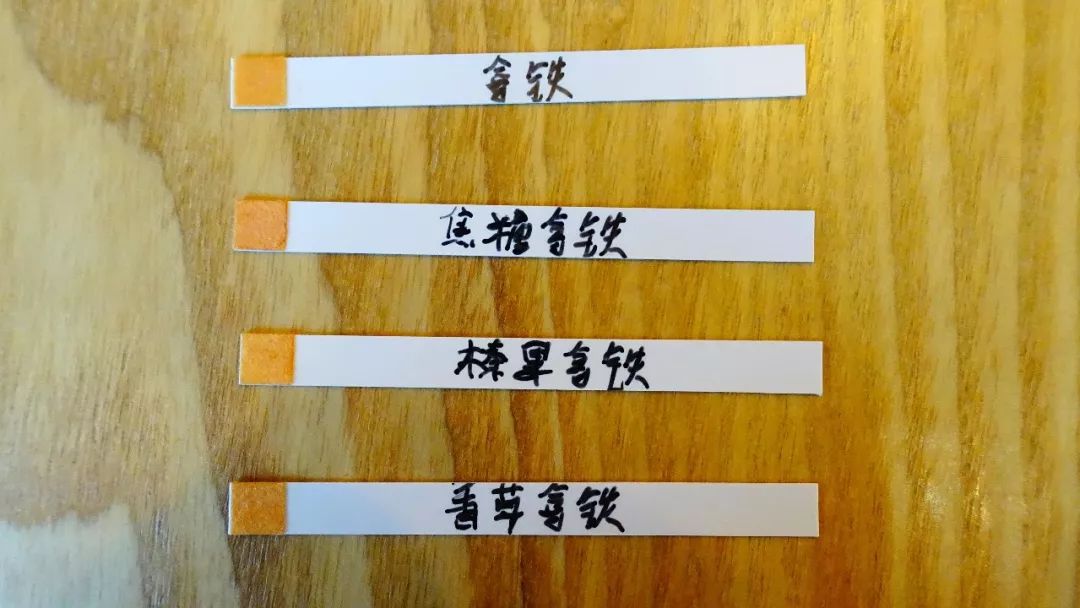 拿铁
焦糖拿铁
榛果拿铁
香草拿铁